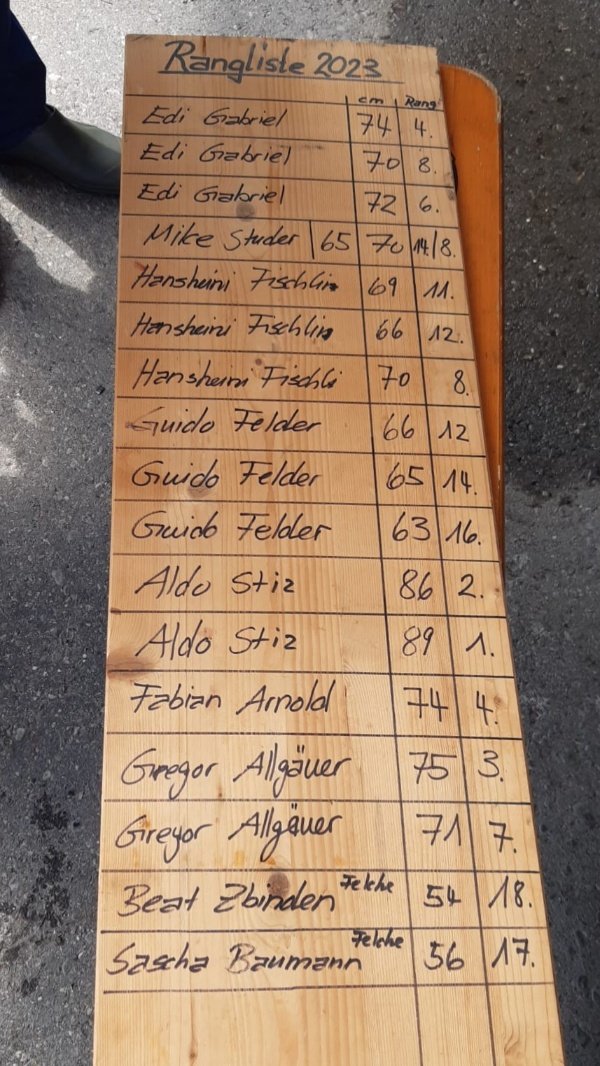 Rangliste 2023
cm Rang
Edi Gabriel 74 4.
Edi Gabriel 70 8.
Edi Gabriel 72 6.
Mike Studer 65 70 14/8.
Hansheini Fischlin 69 11.
Hansheini Fischlin 66 12.
Hansheini Fischli 70 8.
Guido Felder 66 12
Guido Felder 65 14.
Guido Felder 63 16.
Aldo Stiz 86 2.
Aldo Stiz 89 1.
Fabian Arnold 74 4.
Gregor Allgäuer 75 3.
Gregor Allgäuer 71 7.
Beat Zbinden Felche 54 18.
Sascha Baumann Felche 56 17.